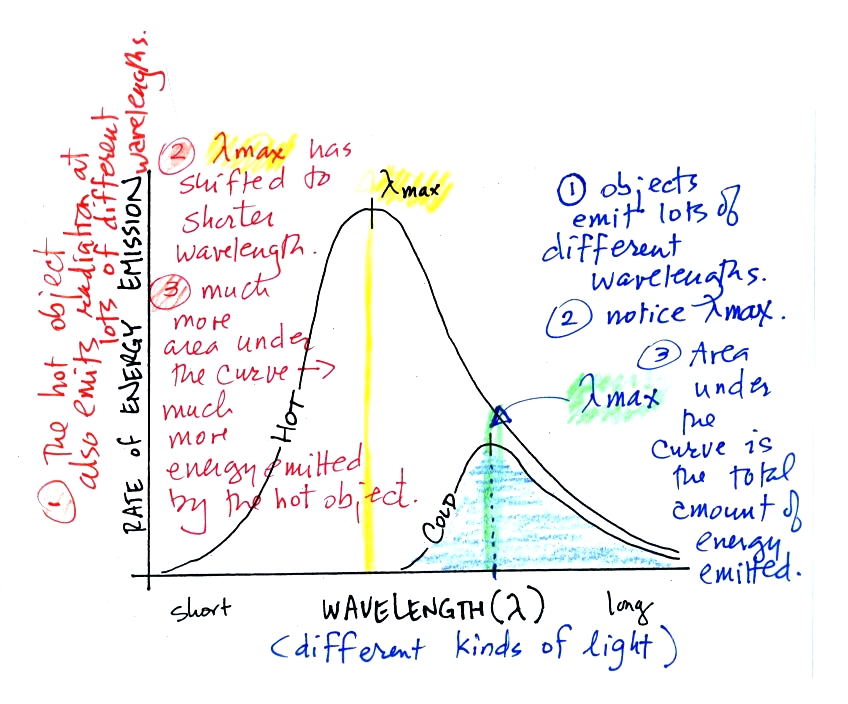 ① The hot object
also emits radiation at
lots of different
wavelengths.
RATE of ENERGY EMISSION
② λmax has
shifted to
shorter
wavelength.
③ much
more
area under
the curve →
much
more
energy emitted
by the hot object.
λmax
HOT
COLD
① objects
emit lots of
different
wavelengths.
② notice λmax.
③ Area
under
the
curve is
the total
amount of
energy
emitted.
λmax
short
WAVELENGTH (λ)
long
(different kinds of light)